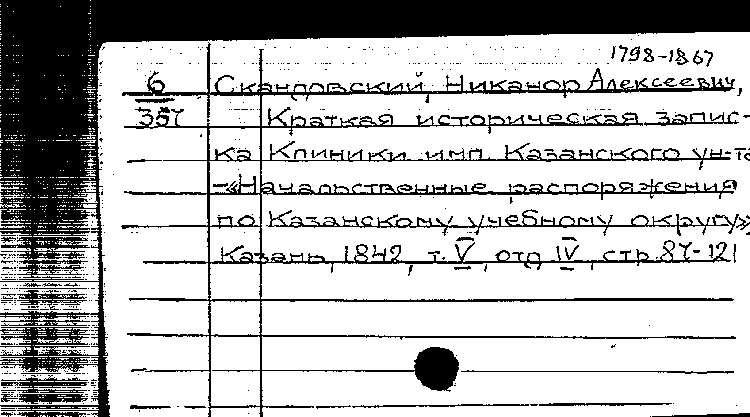 1798-1867
6 Скандовский, Никанор Алексеевич,
357 Краткая историческая запис-
ка Клиники имп. Казанского ун-та
-«Начальственные распоряжения
по Казанскому учебному округу»
Казань, 1842, т. V, отд IV, стр 87-121